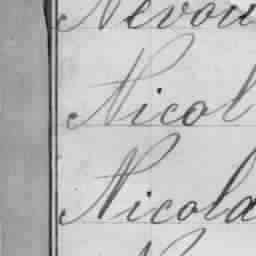 Nevou
Nicol
Nicola